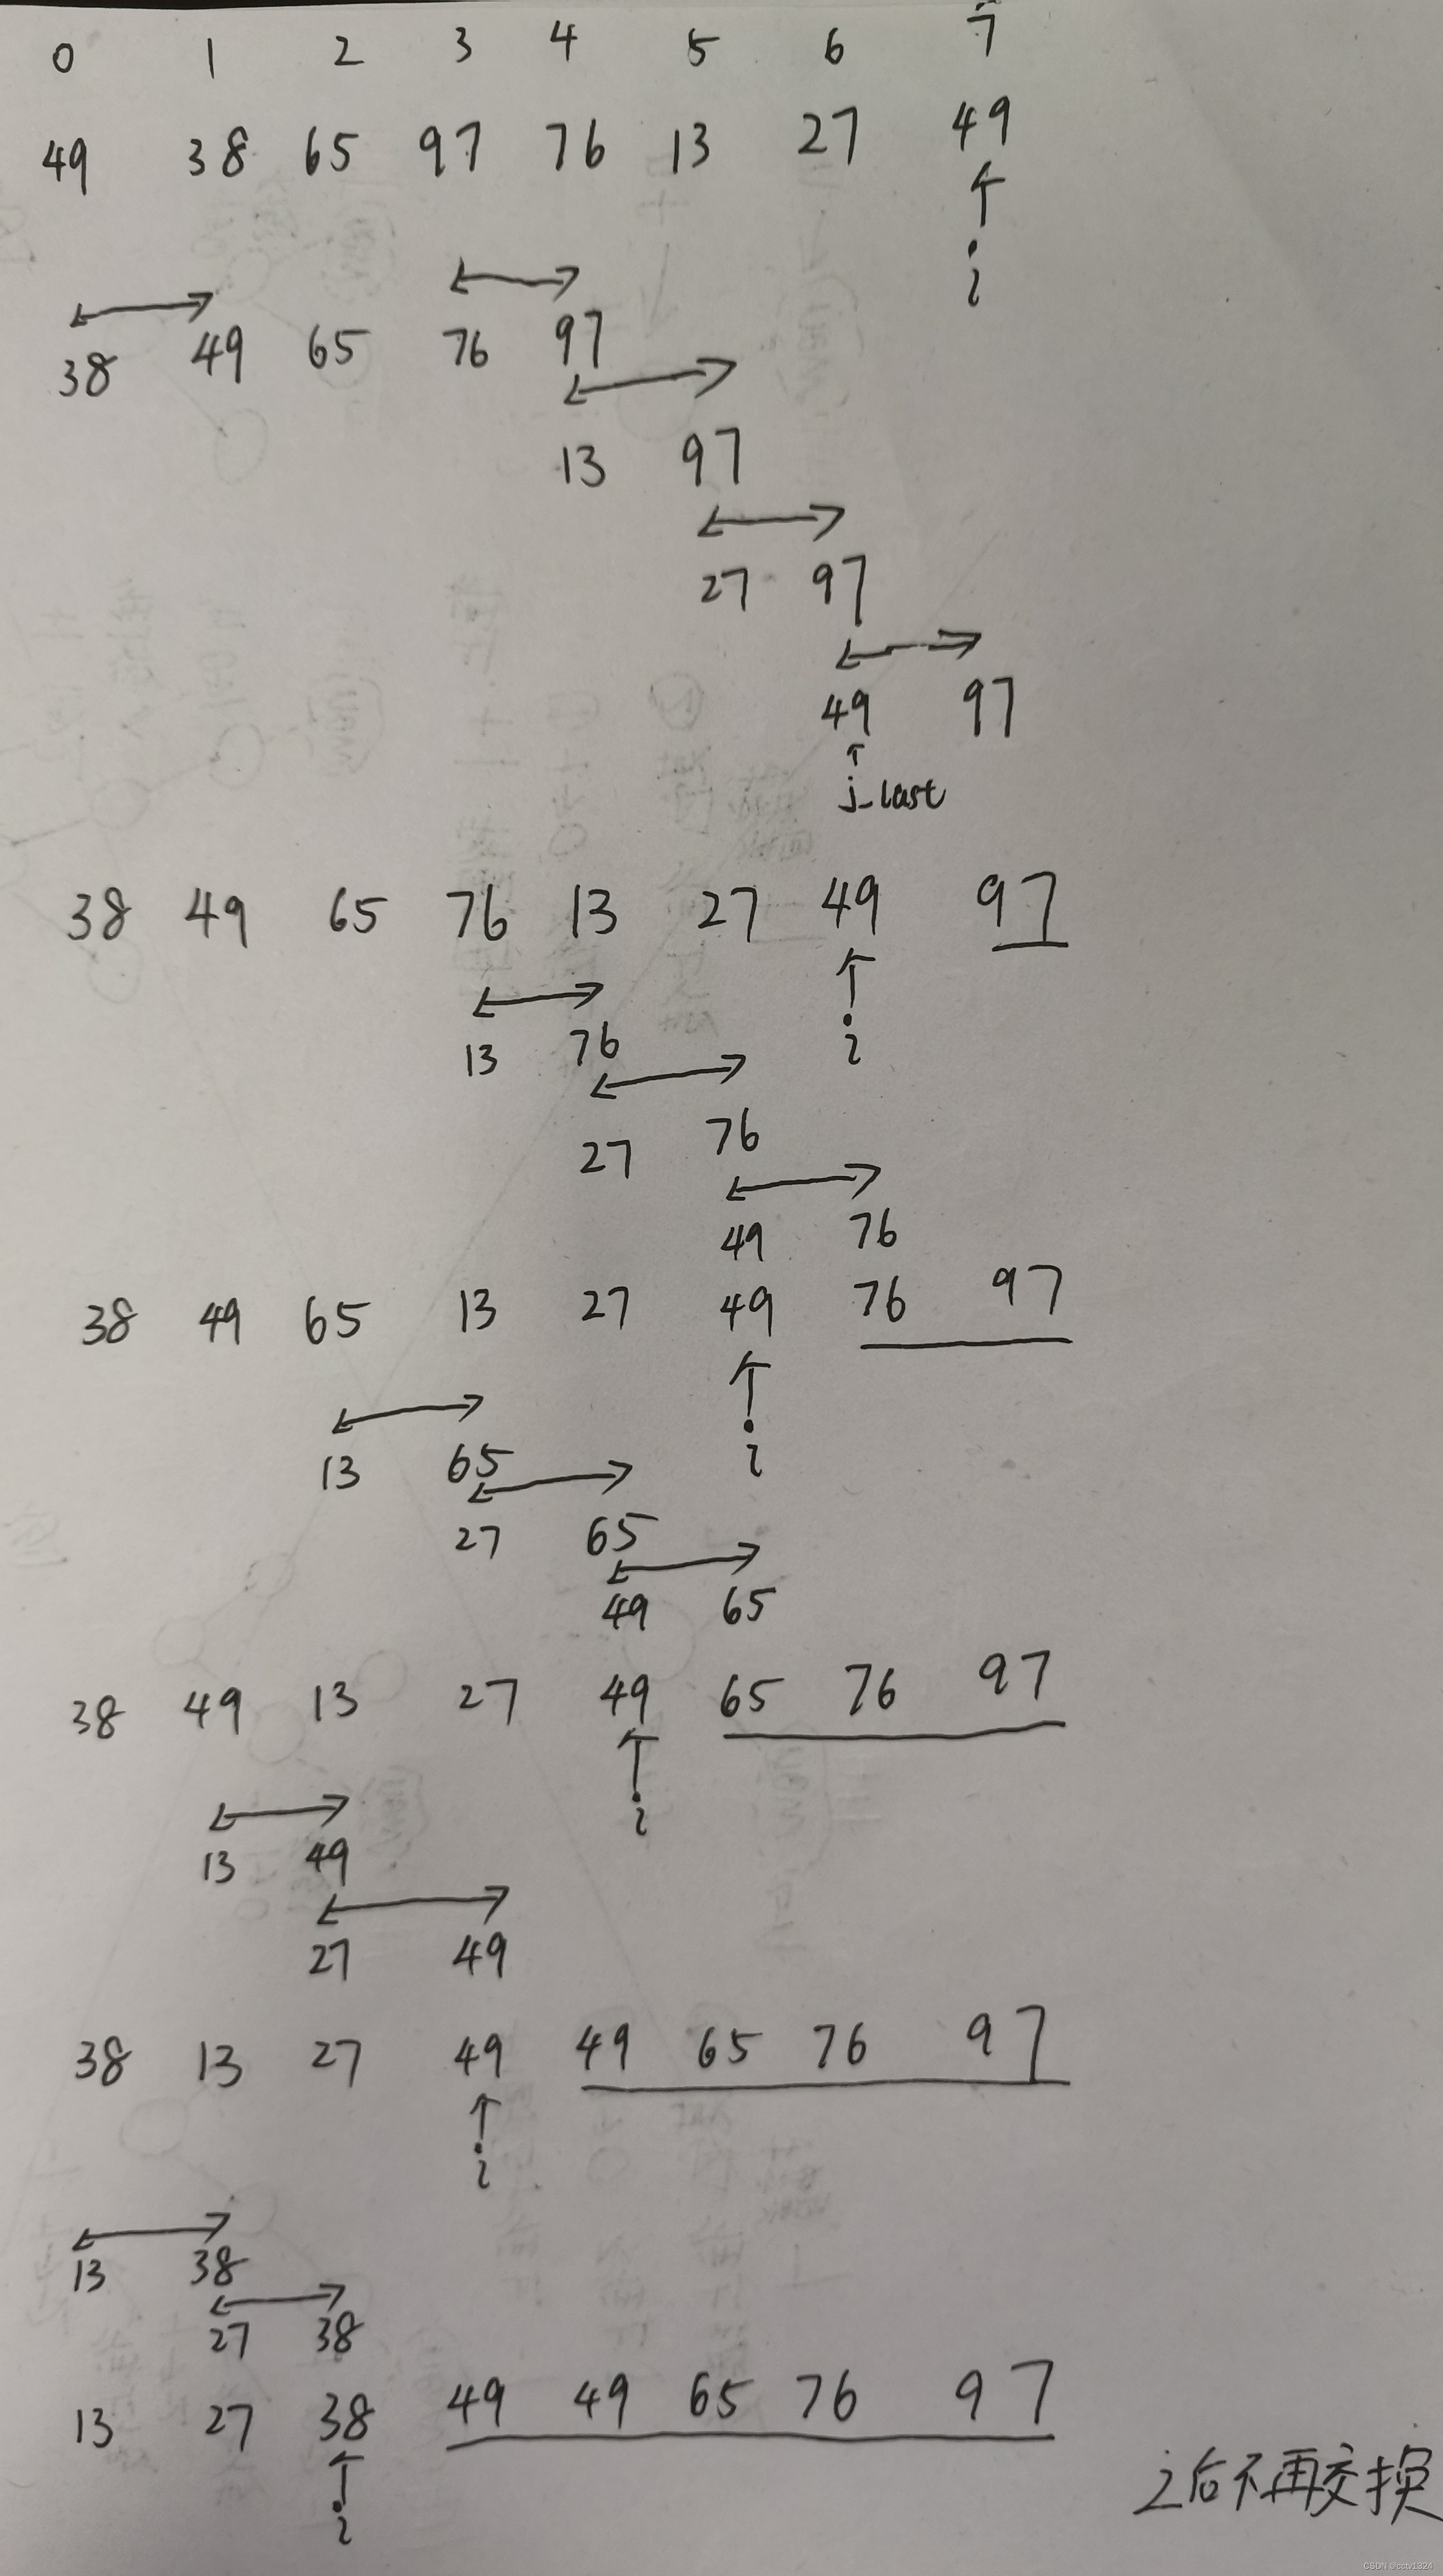 0 1 2 3 4 5 6 7
49 38 65 97 76 13 27 49
i
38 49 65 76 97
13 97
27 97
49 97
j_last
38 49 65 76 13 27 49 97
i
13 76
27 76
49 76
38 49 65 13 27 49 76 97
i
13 65
27 65
49 65
38 49 13 27 49 65 76 97
i
13 49
27 49
38 13 27 49 49 65 76 97
i
13 38
27 38
13 27 38 49 49 65 76 97
i
之后不再交换
CSDN @cctv1324